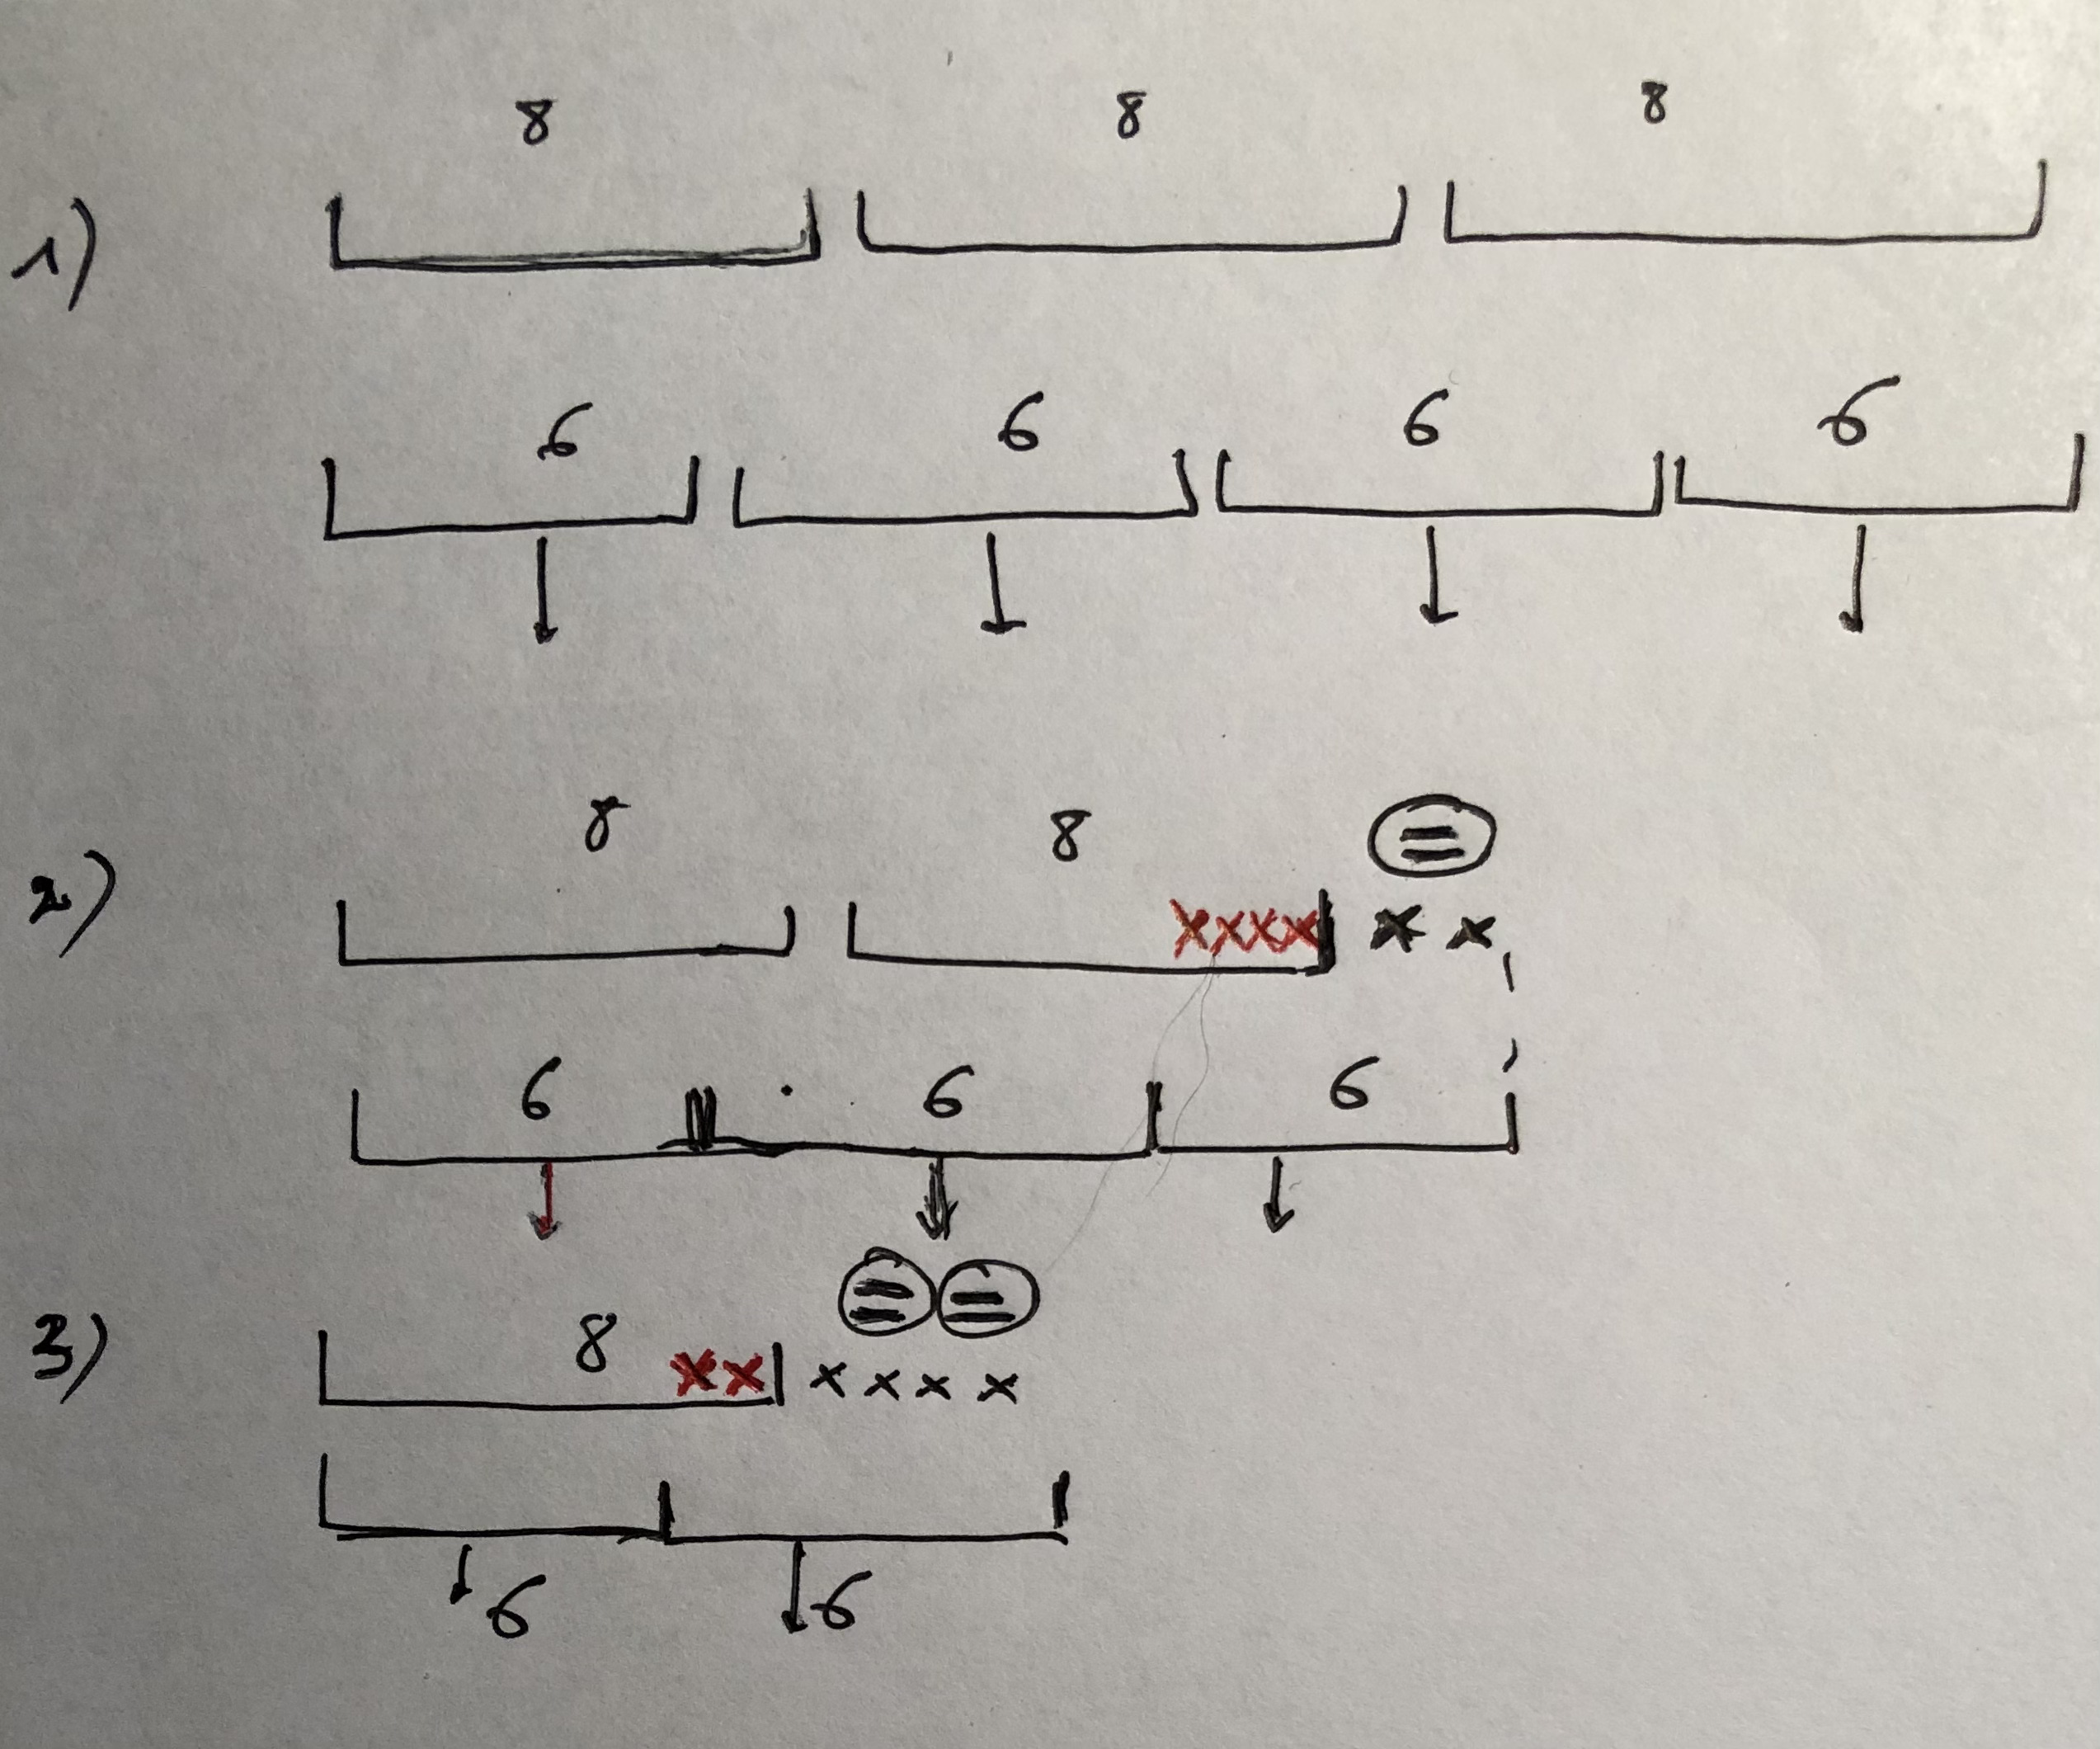 8 8 8
1)
6 6 6 6
8 8 =
2) xxxx x x
6 6 6
= =
3) 8 xx x x x x
6 6